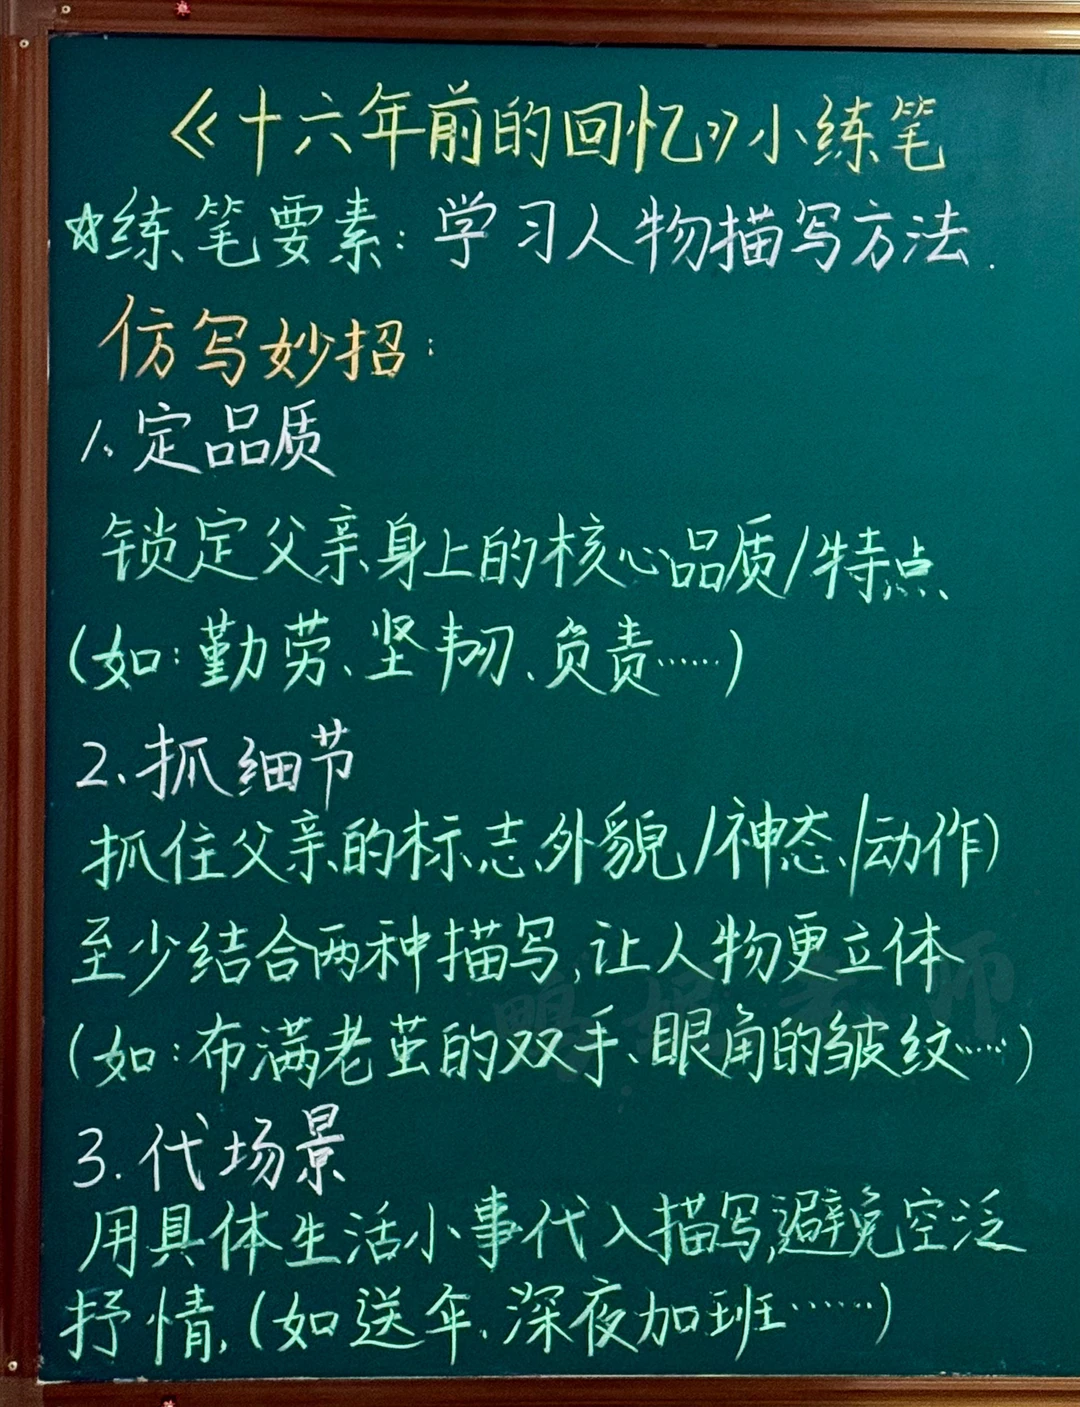 《十六年前的回忆》小练笔
☆练笔要素：学习人物描写方法.
仿写妙招：
1、定品质
锁定父亲身上的核心品质/特点
(如：勤劳、坚韧、负责……)
2、抓细节
抓住父亲的标志外貌/神态/动作)
至少结合两种描写,让人物更立体
(如：布满老茧的双手、眼角的皱纹……)
3.代场景
用具体生活小事代入描写,避免空泛
抒情,(如送伞、深夜加班……)